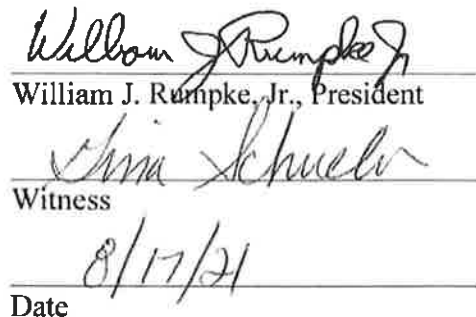 William J Rumpke Jr
William J. Rumpke, Jr., President
Tina Schueler
Witness
8/17/21
Date